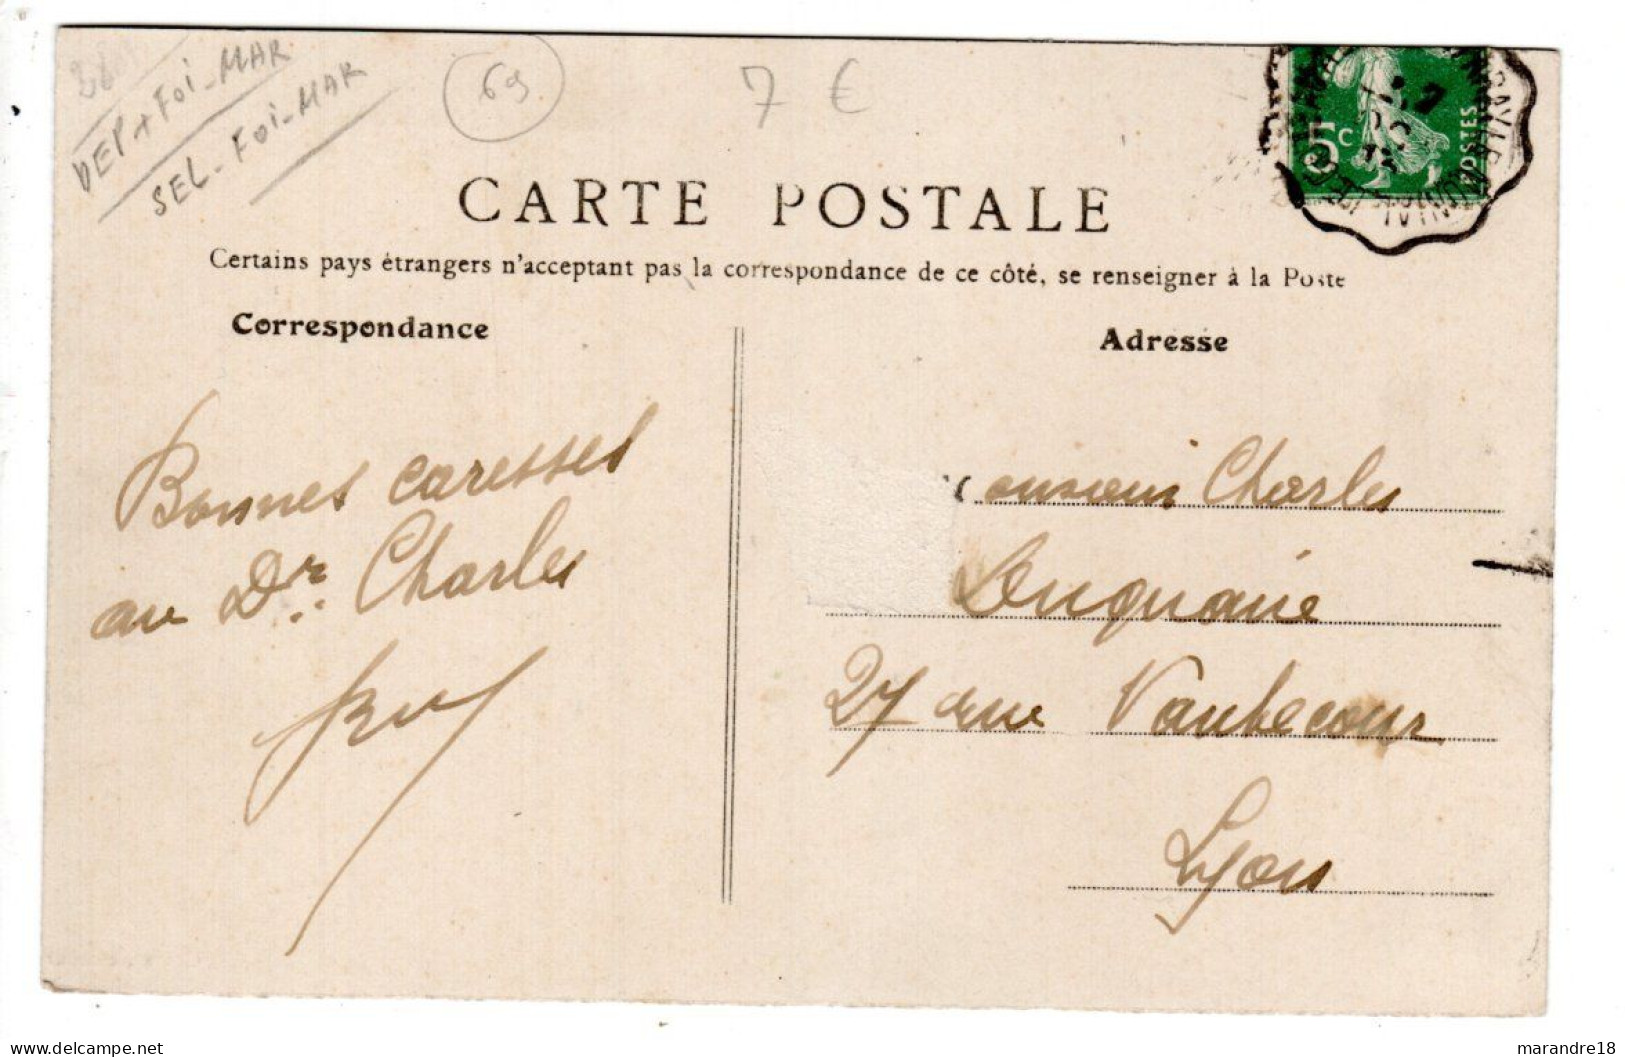 DEP + FOI-MAR
SEL-FOI-MAR
69
7 €
5c
POSTES
CARTE POSTALE
Certains pays étrangers n'acceptant pas la correspondance de ce côté, se renseigner à la Poste
Correspondance
Adresse
Bonnes caresses
au Dr. Charles
onsieur Charles
27 rue Vaubecour
Lyon
delcampe.net
marandre18